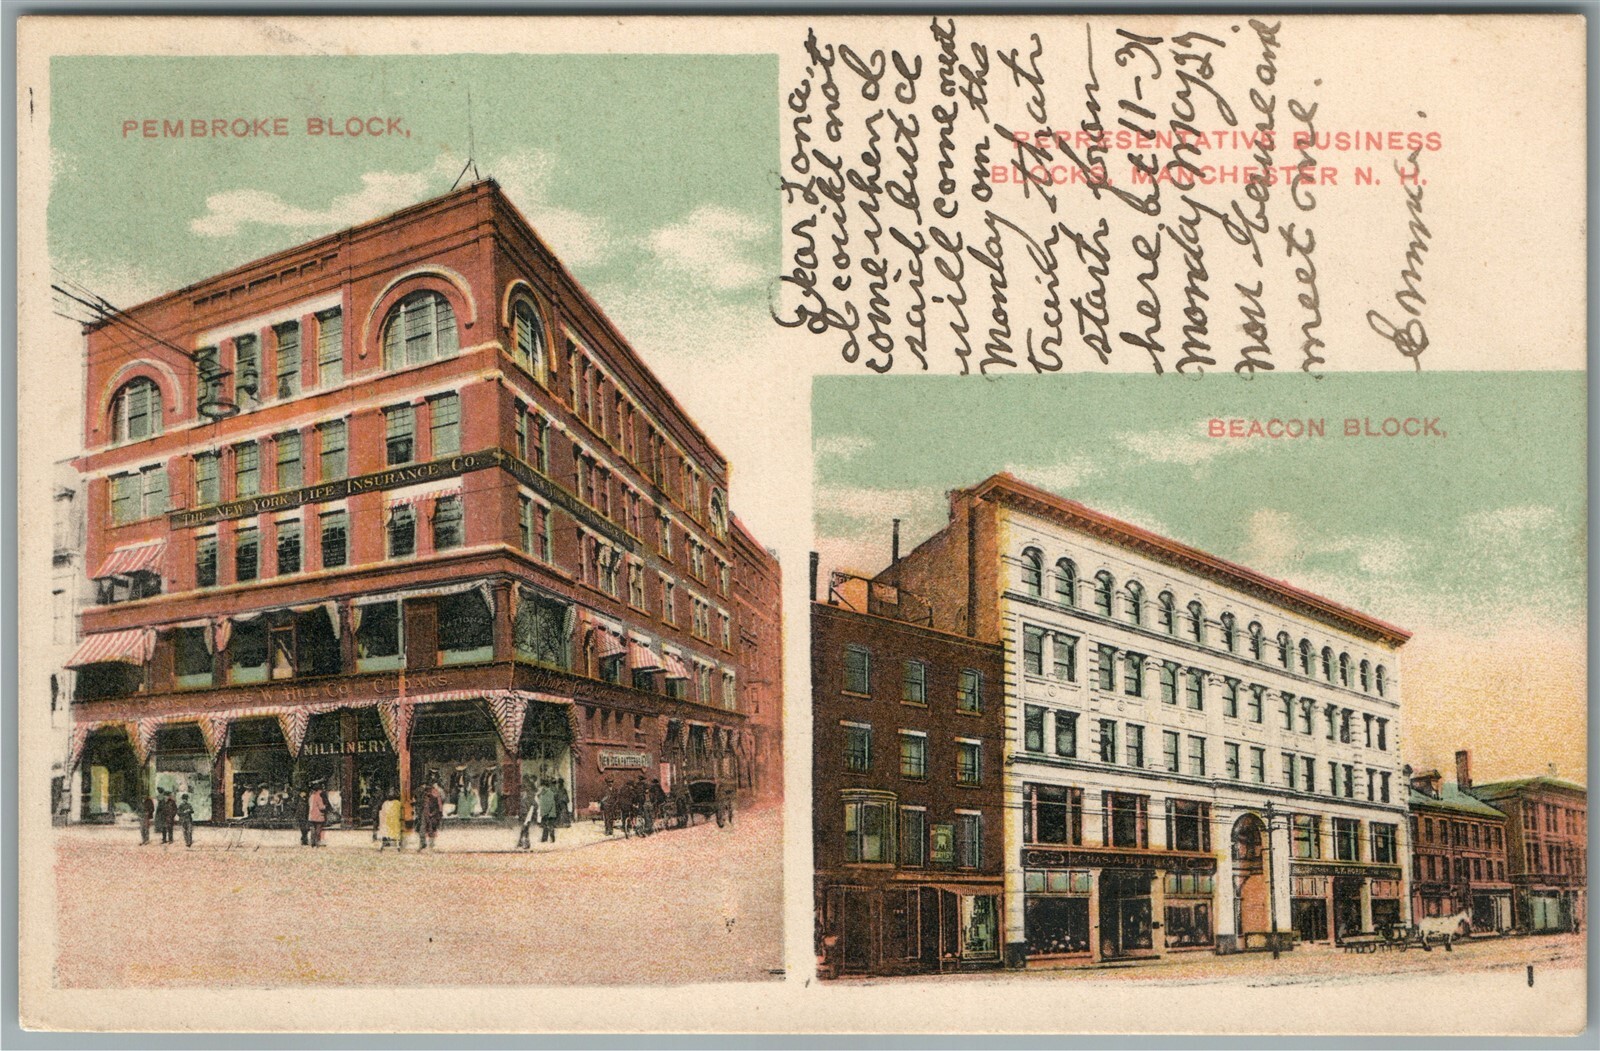 PEMBROKE BLOCK,
REPRESENTATIVE BUSINESS
BLOCKS, MANCHESTER N. H.
BEACON BLOCK,
Dear Lona,
I could not
come when I
said but I
will come next
Monday on the
train that
starts from
here at 11-31
Monday May 27.
You cause and
meet me.
Emma.
THE NEW YORK LIFE INSURANCE CO.
W. HILL CO. CIGARS
NATIONAL
MILLINERY
CHAS. A. HOITT